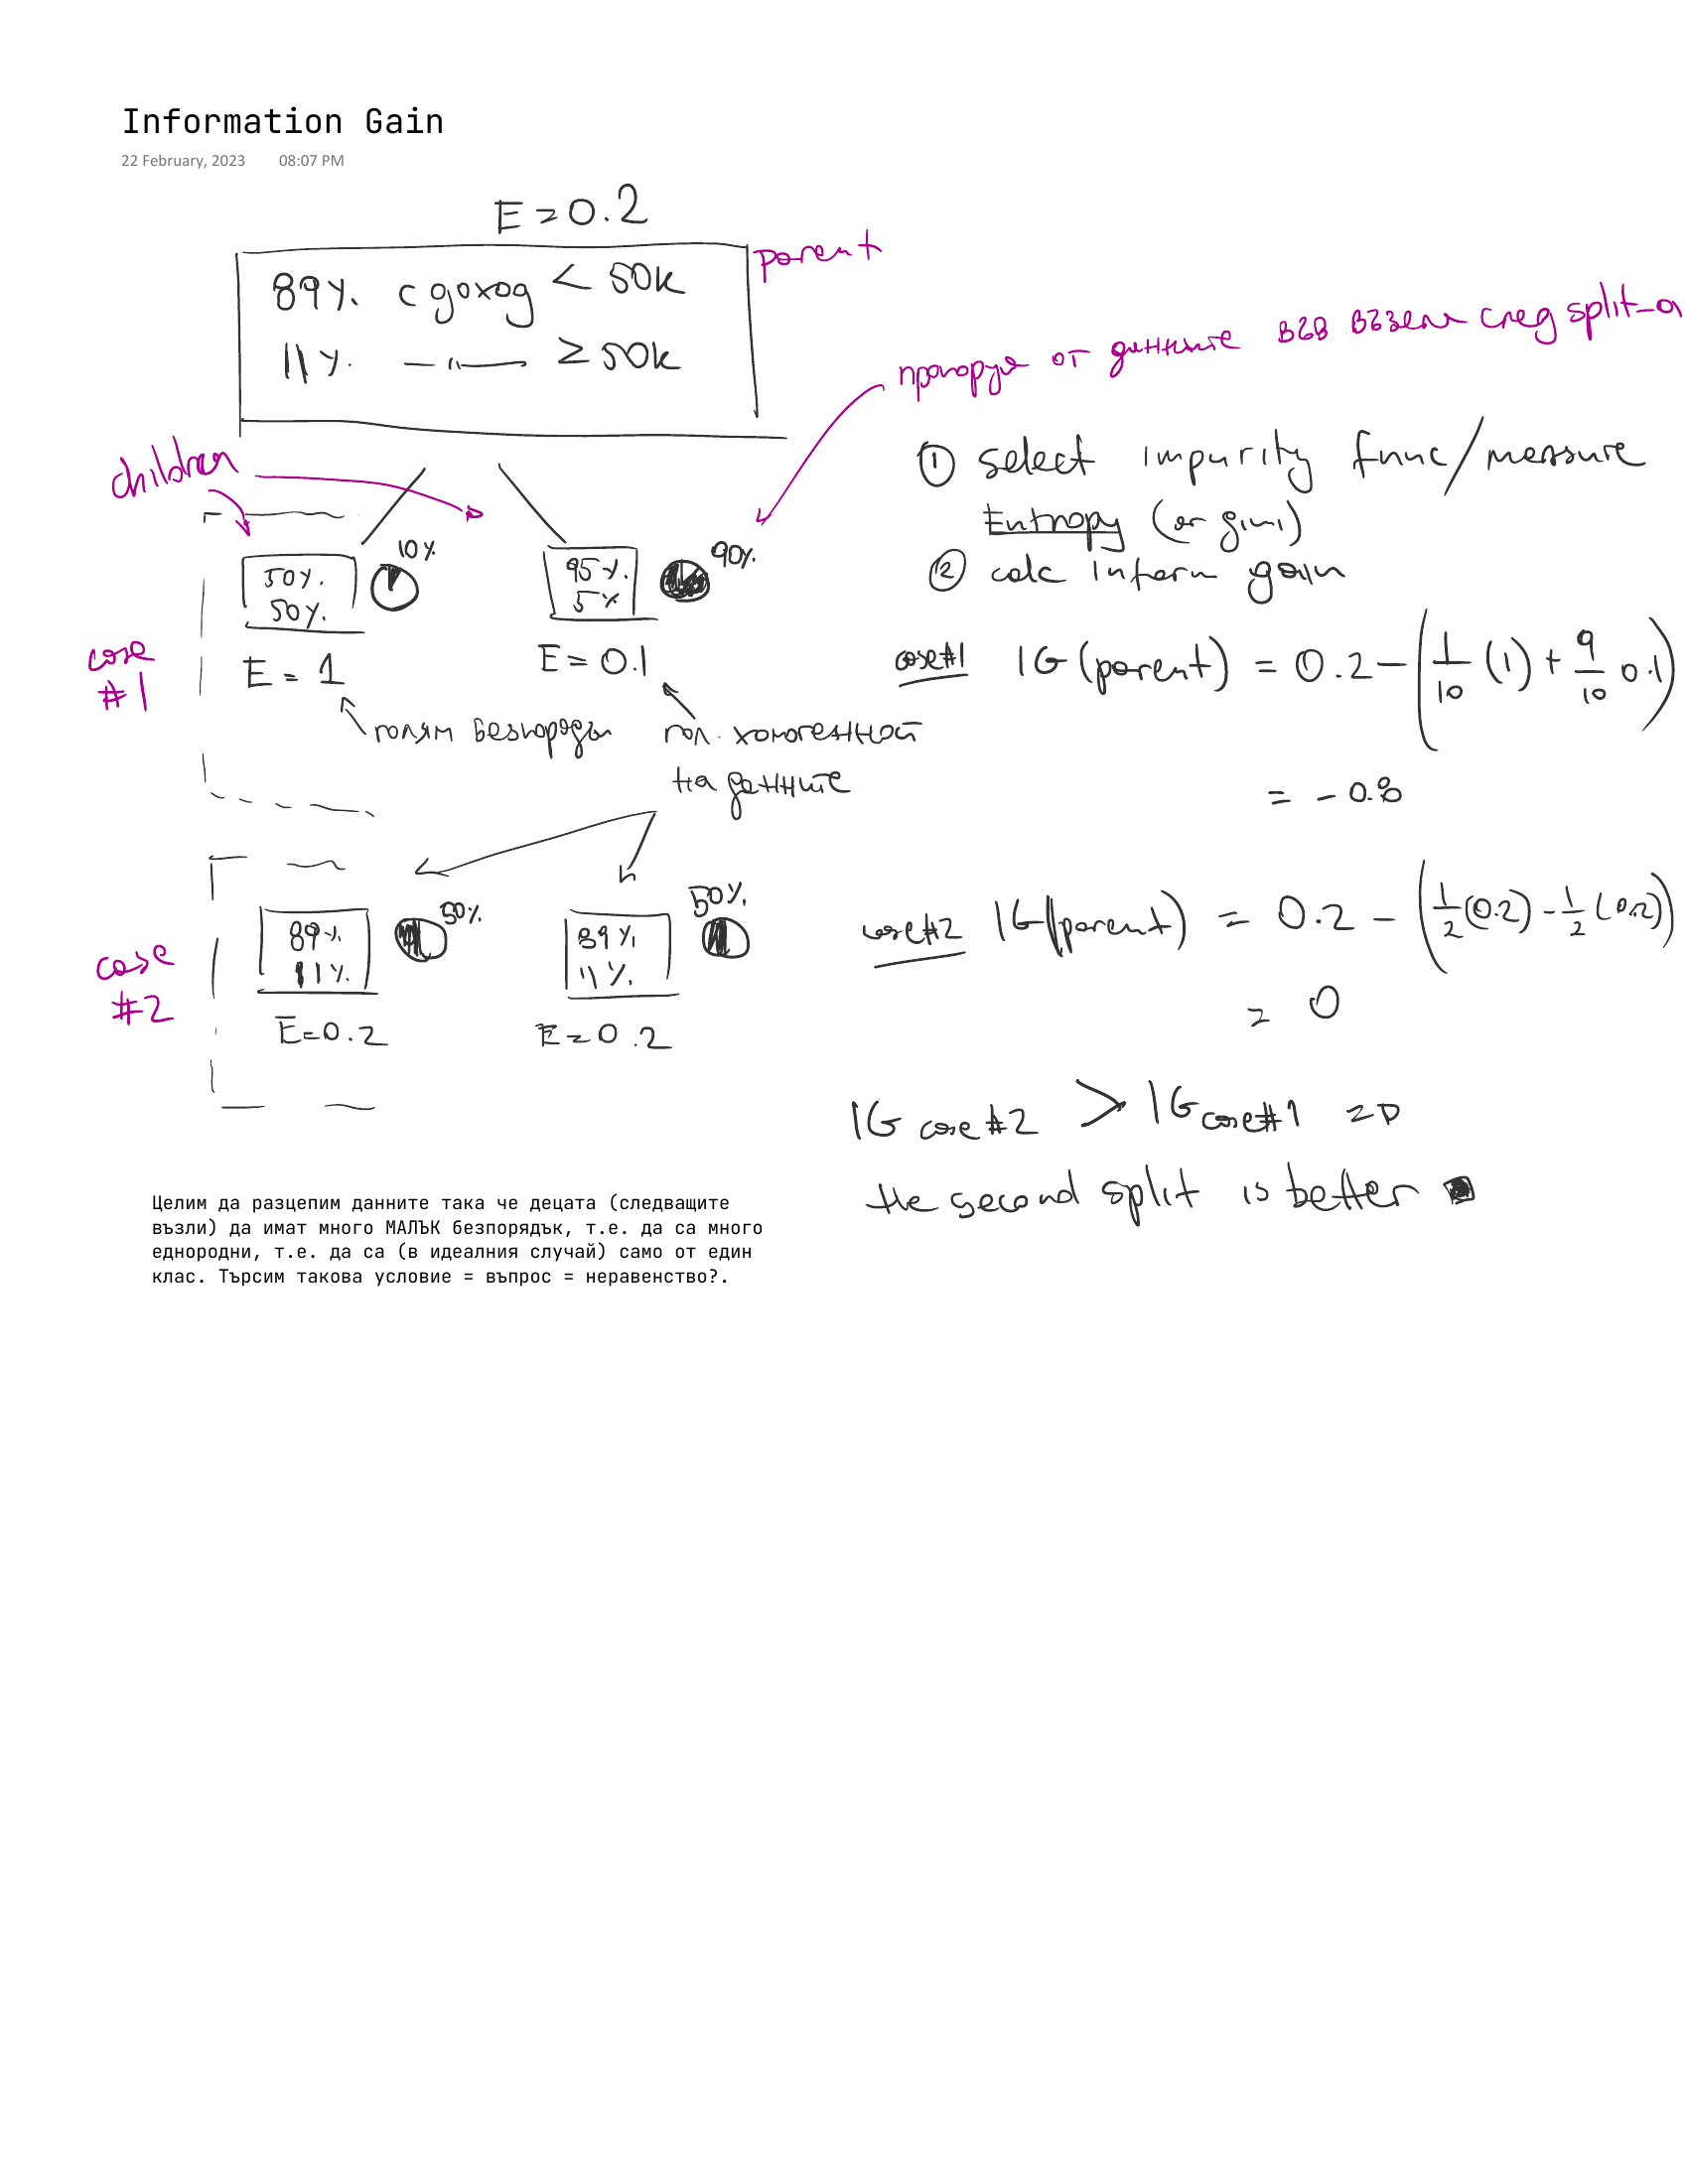 Information Gain
22 February, 2023 08:07 PM
E = 0.2
parent
89% с доход < 50k
11% —"— ≥ 50k
пропорция от данните във възела след split-а
children
① select impurity func/measure
Entropy (or gini)
② calc inform gain
10%
90%
50%
50%
95%
5%
case #1
E = 1
E = 0.1
голям безпорядък
гол. хомогенност
на данните
case#1 IG(parent) = 0.2 - (1/10 (1) + 9/10 0.1)
= - 0.8
50%
50%
case #2
89%
11%
89%
11%
E = 0.2
E = 0.2
case#2 IG(parent) = 0.2 - (1/2 (0.2) - 1/2 (0.2))
= 0
IG case#2 > IG case#1 =>
the second split is better
Целим да разцепим данните така че децата (следващите
възли) да имат много МАЛЪК безпорядък, т.е. да са много
еднородни, т.е. да са (в идеалния случай) само от един
клас. Търсим такова условие = въпрос = неравенство?.